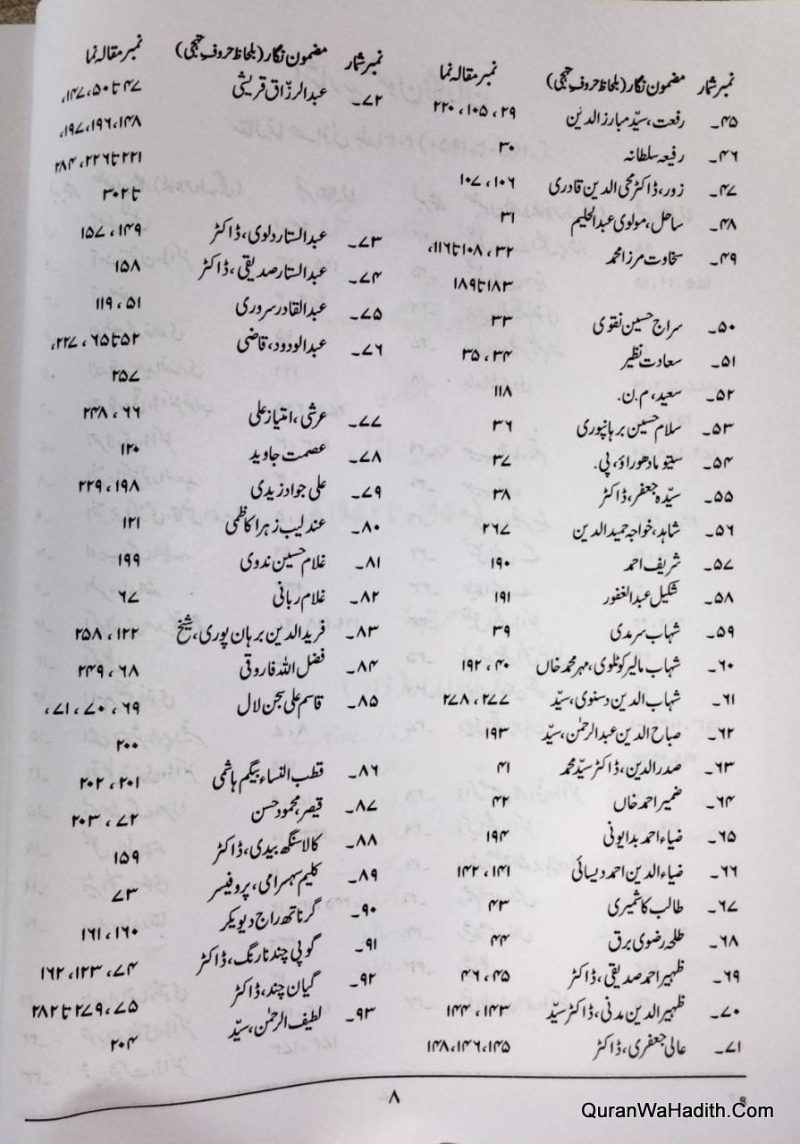 نمبر شمار مضمون نگار (بلحاظ حروف تہجی) نمبر مقالہ نما
۴۵۔ رفعت، سیّد مبارز الدین ۲۹، ۱۰۵، ۲۲۰
۴۶۔ رفیعہ سلطانہ ۳۰
۴۷۔ زور، ڈاکٹر محی الدین قادری ۱۰۶، ۱۰۷
۴۸۔ ساحل، مولوی عبدالحلیم ۳۱
۴۹۔ سخاوت مرزا محمد ۳۲، ۱۰۸ تا ۱۱۶،
۱۸۳ تا ۱۸۹
۵۰۔ سراج حسین نقوی ۳۳
۵۱۔ سعادت نظیر ۳۴، ۳۵
۵۲۔ سعید، م.ن. ۱۱۸
۵۳۔ سلام حسین برہانپوری ۳۶
۵۴۔ سیتو مادھوراؤ، پی. ۳۷
۵۵۔ سیّدہ جعفر، ڈاکٹر ۳۸
۵۶۔ شاہد، خواجہ حمید الدین ۲۶۷
۵۷۔ شریف احمد ۱۹۰
۵۸۔ شکیل عبدالغفور ۱۹۱
۵۹۔ شہاب سرمدی ۳۹
۶۰۔ شہاب مالیر کوٹلوی، مہر محمد خاں ۴۰، ۱۹۲
۶۱۔ شہاب الدین دسنوی، سیّد ۲۷۷، ۲۷۸
۶۲۔ صباح الدین عبدالرحمٰن، سیّد ۱۹۳
۶۳۔ صدر الدین، ڈاکٹر سیّد محمد ۴۱
۶۴۔ ضمیر احمد خاں ۴۲
۶۵۔ ضیاء احمد بدایونی ۱۹۴
۶۶۔ ضیاء الدین احمد دیسائی ۱۴۱، ۱۴۲
۶۷۔ طالب کاشمیری ۴۳
۶۸۔ طلحہ رضوی برق ۴۴
۶۹۔ ظہیر احمد صدیقی، ڈاکٹر ۴۵، ۴۶
۷۰۔ ظہیر الدین مدنی، ڈاکٹر سیّد ۱۴۳، ۱۴۴
۷۱۔ عالی جعفری، ڈاکٹر ۱۴۵، ۱۴۶، ۱۴۸
نمبر شمار مضمون نگار (بلحاظ حروف تہجی) نمبر مقالہ نما
۷۲۔ عبدالرزّاق قریشی ۴۷ تا ۵۰، ۱۴۷،
۱۴۸، ۱۹۶، ۱۹۷،
۲۲۱ تا ۲۲۶، ۲۸۴
تا ۳۰۲
۷۳۔ عبدالستار دلوی، ڈاکٹر ۱۴۹، ۱۵۷
۷۴۔ عبدالستار صدیقی، ڈاکٹر ۱۵۸
۷۵۔ عبدالقادر سروری ۵۱، ۱۱۹
۷۶۔ عبدالودود، قاضی ۵۲ تا ۶۵، ۲۲۷،
۲۵۷
۷۷۔ عرشی، امتیاز علی ۶۶، ۲۴۸
۷۸۔ عصمت جاوید ۱۲۰
۷۹۔ علی جواد زیدی ۱۹۸، ۲۲۹
۸۰۔ عندلیب زہرا کاظمی ۱۲۱
۸۱۔ غلام حسین ندوی ۱۹۹
۸۲۔ غلام ربانی ۶۷
۸۳۔ فرید الدین برہان پوری، شیخ ۱۲۲، ۲۵۸
۸۴۔ فضل اللہ فاروقی ۶۸، ۲۴۹
۸۵۔ قاسم علی سجن لال ۶۹، ۷۰، ۷۱،
۲۰۰
۸۶۔ قطب النساء بیگم ہاشمی ۲۰۱، ۲۰۲
۸۷۔ قیصر، محمود حسن ۷۲، ۲۰۳
۸۸۔ کالا سنگھ بیدی، ڈاکٹر ۱۵۹
۸۹۔ کلیم سہسرامی، پروفیسر ۷۳
۹۰۔ گرناتھ راج دیویکر ۱۶۰، ۱۶۱
۹۱۔ گوپی چند نارنگ، ڈاکٹر ۷۴، ۱۲۳، ۱۶۲
۹۲۔ گیان چند، ڈاکٹر ۷۵، ۲۷۹ تا ۲۸۲
۹۳۔ لطیف الرحمٰن، سیّد ۲۰۴
۸
QuranWaHadith.Com